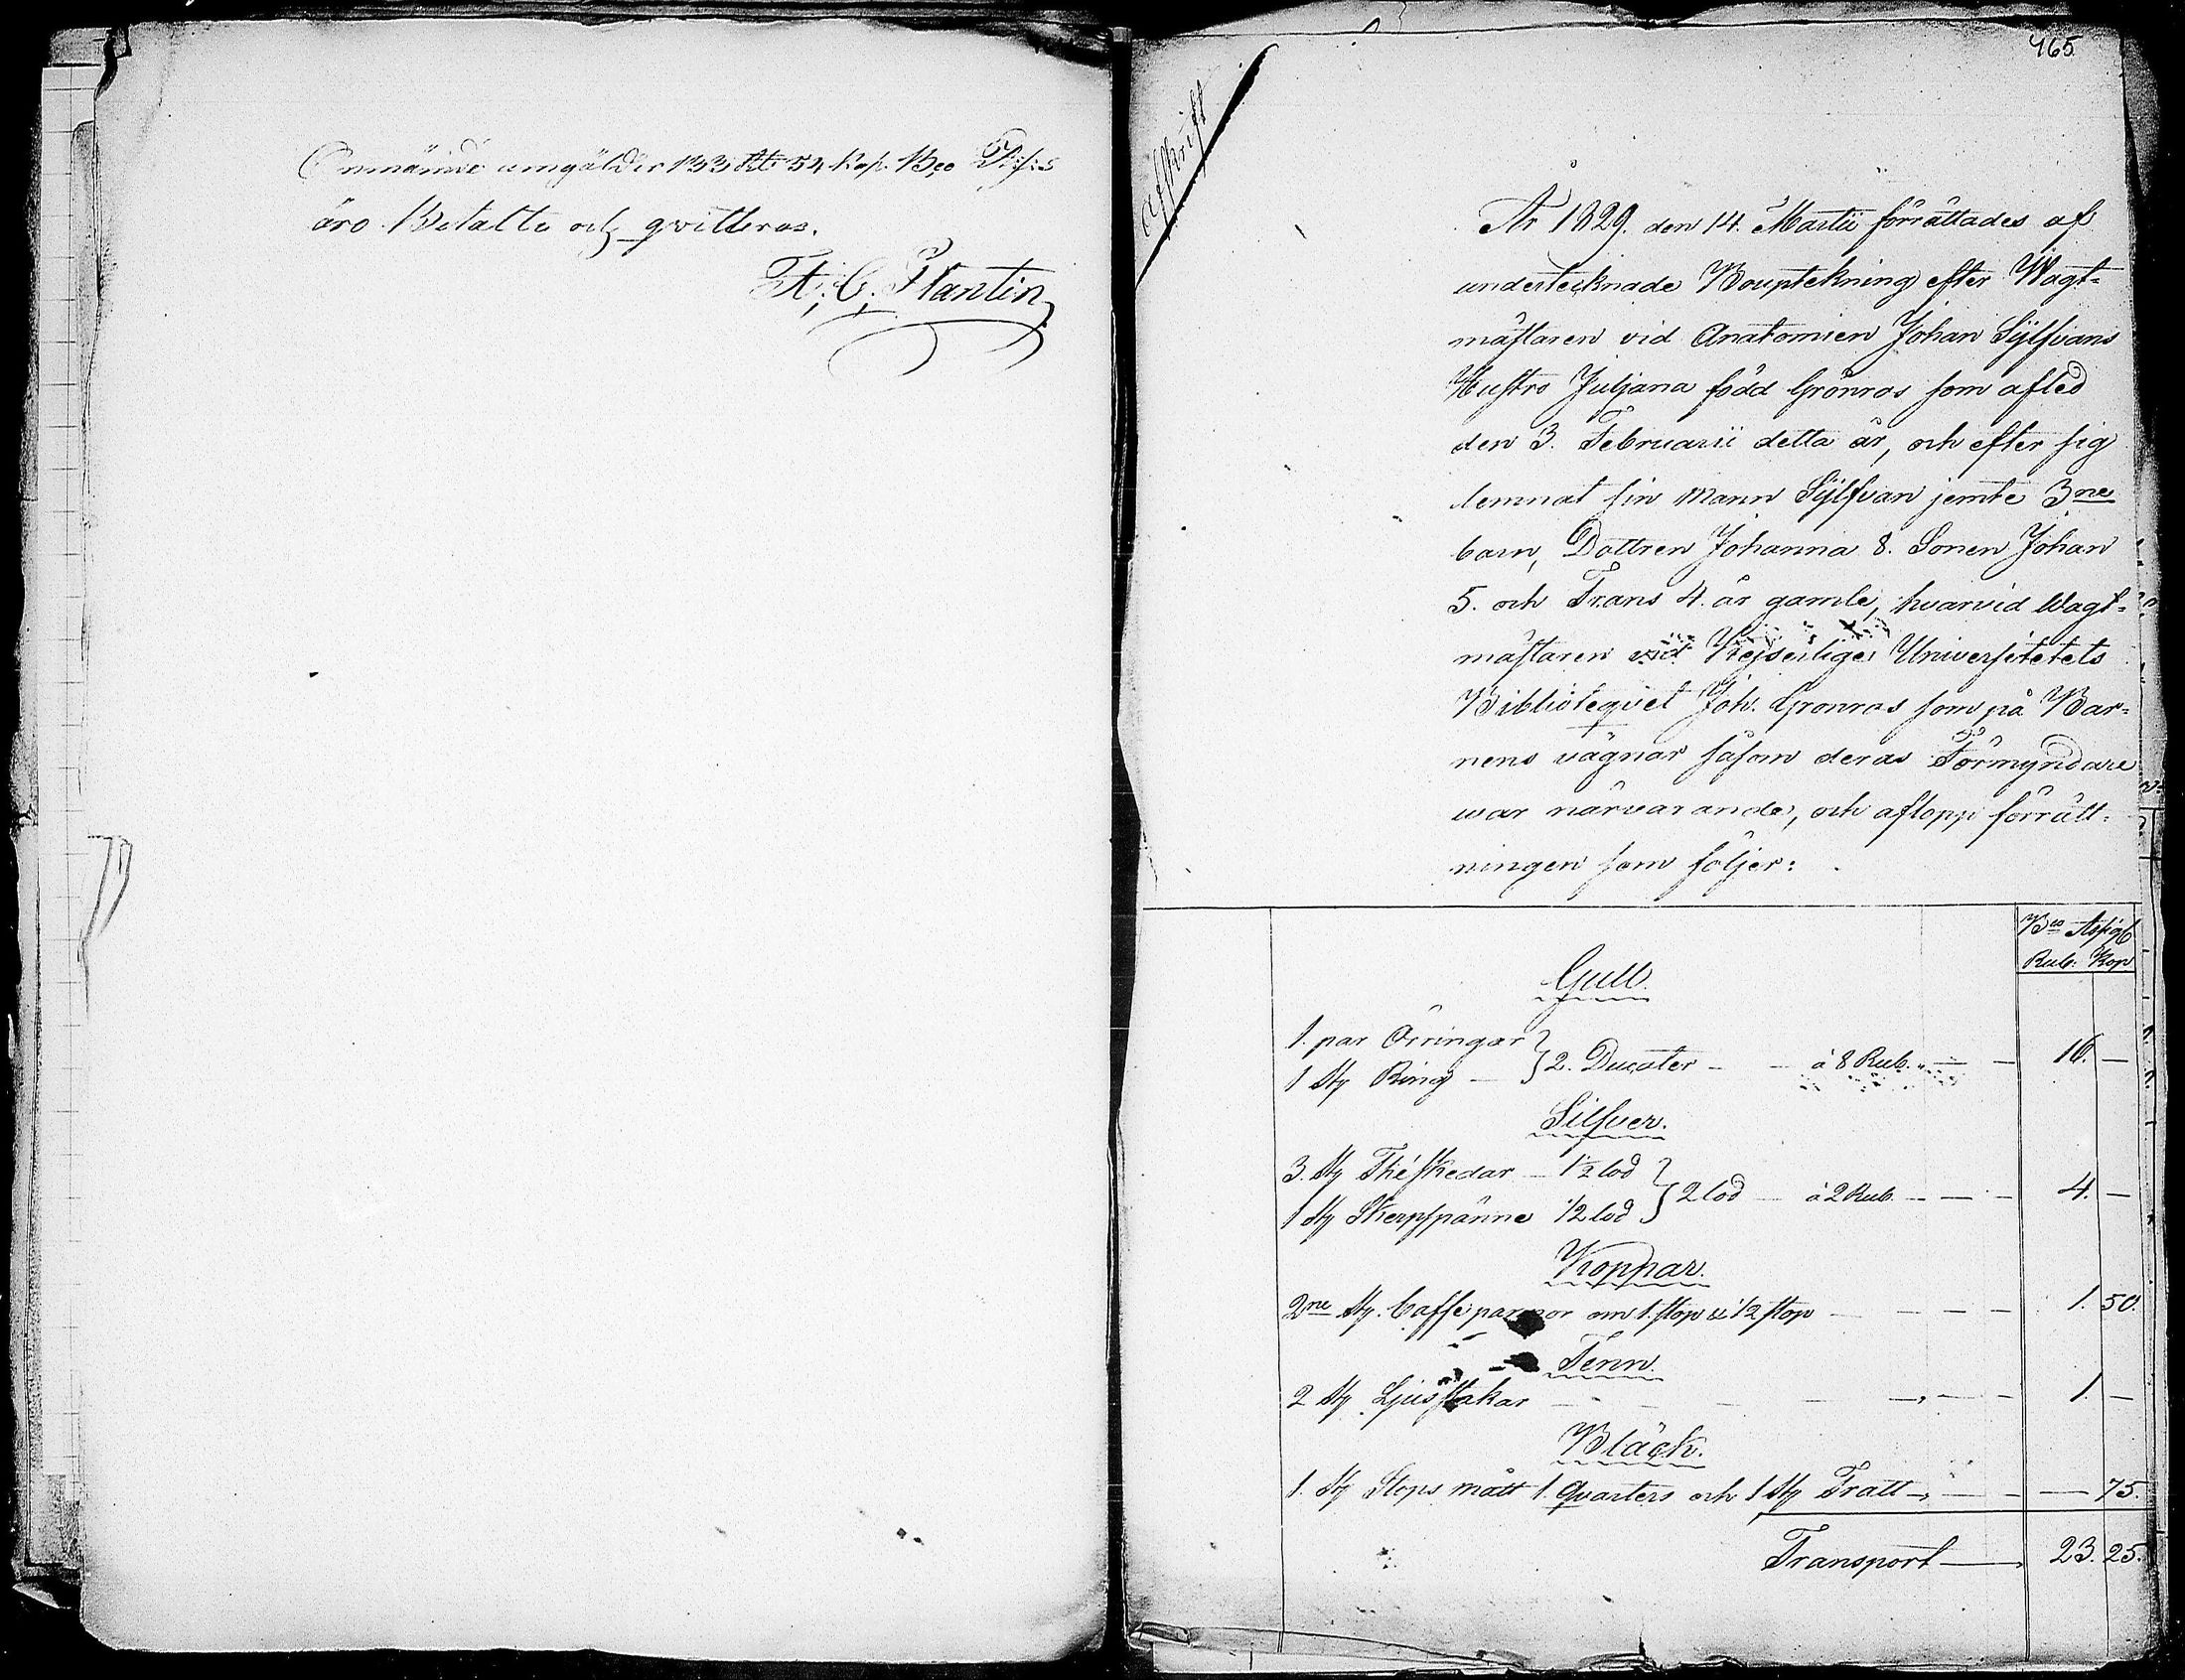 Omnämnde umgälder 133 Rub 54 Kop. Bco
äro Betalte och qvitteras.
Plantin
465
Afskrift
År 1829. den 14. Martii förrättades af
undertecknade Bouptekning efter Wagt-
mästaren vid Anatomien Johan Sylfvans
Hustro Juljana född Grönros som afled
den 3. Februarii detta år, och efter sig
lemnat sin Mann Sylfvan jemte 3ne
barn, Dottren Johanna 8. Sonen Johan
5. och Frans 4. år gamle, hvarvid Wagt-
mästaren vid Kejserlige Universitetets
Biblioteqvet Joh. Grönros som på Bar-
nens vägnar såsom deras Förmyndare
war närvarande, och aflopp förrätt-
ningen som följer:
Bco Assig
Rub. Kop
Gull.
1. par Örringar
1 St Ring } 2. Ducater - - à 8 Rub. - - 16. -
Silfver.
3. St Théskedar - 1½ lod
1 St Skerpspänne ½ lod } 2 lod - à 2 Rub. - - - 4. -
Koppar.
2ne St. Caffe pannor om 1. stop & ½ stop - - - - 1. 50.
Tenn.
2 St Ljusstakar - - - - - - - 1. -
Bläck.
1. St Stops mått 1. Qvarters och 1 St Tratt - - - 75.
Transport - 23. 25.